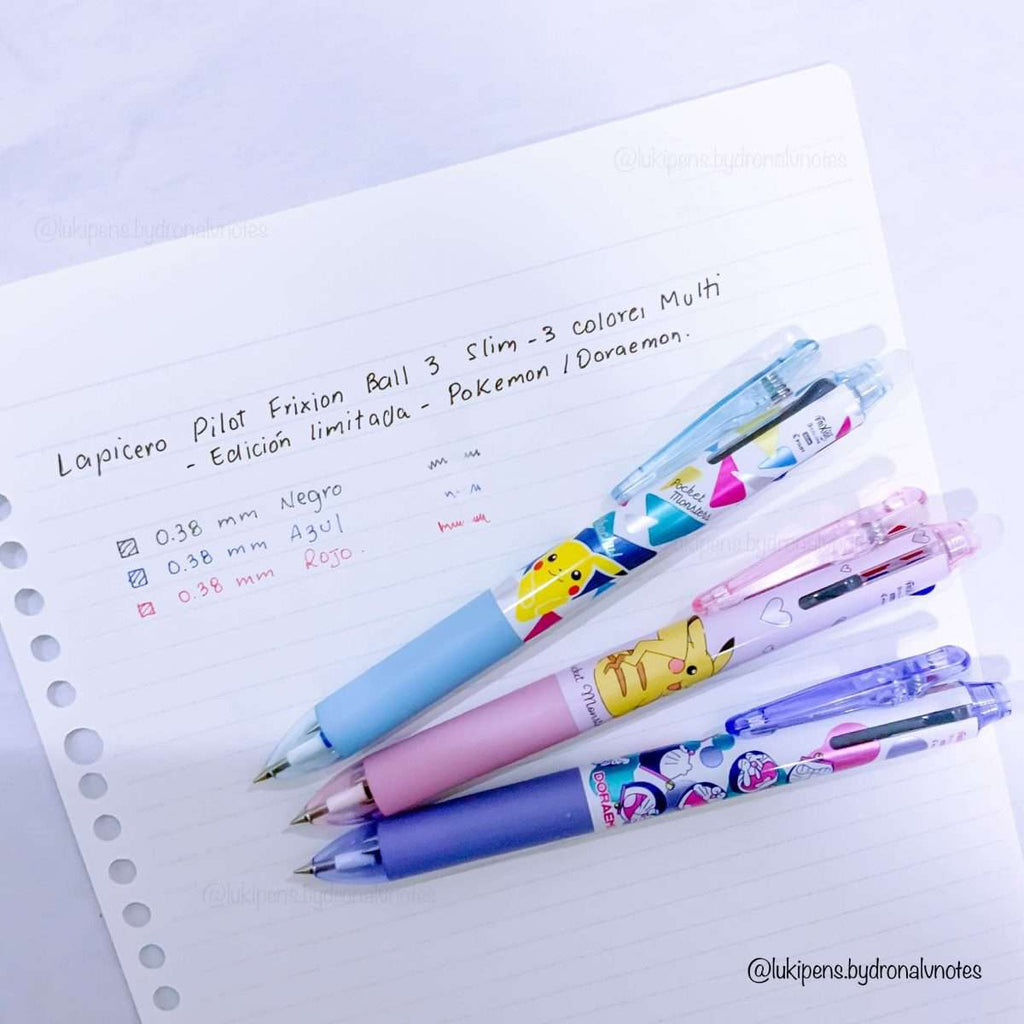 @lukipens.bydronalvnotes
@lukipens.bydronalvnotes
Lapicero Pilot Frixion Ball 3 Slim - 3 colores Multi
- Edición limitada - Pokemon / Doraemon.
0.38 mm Negro
0.38 mm Azul
0.38 mm Rojo.
Pocket
Monsters
Pocket Monst
DORAEM
@lukipens.bydronalvnotes
@lukipens.bydronalvnotes
@lukipens.bydronalvnotes